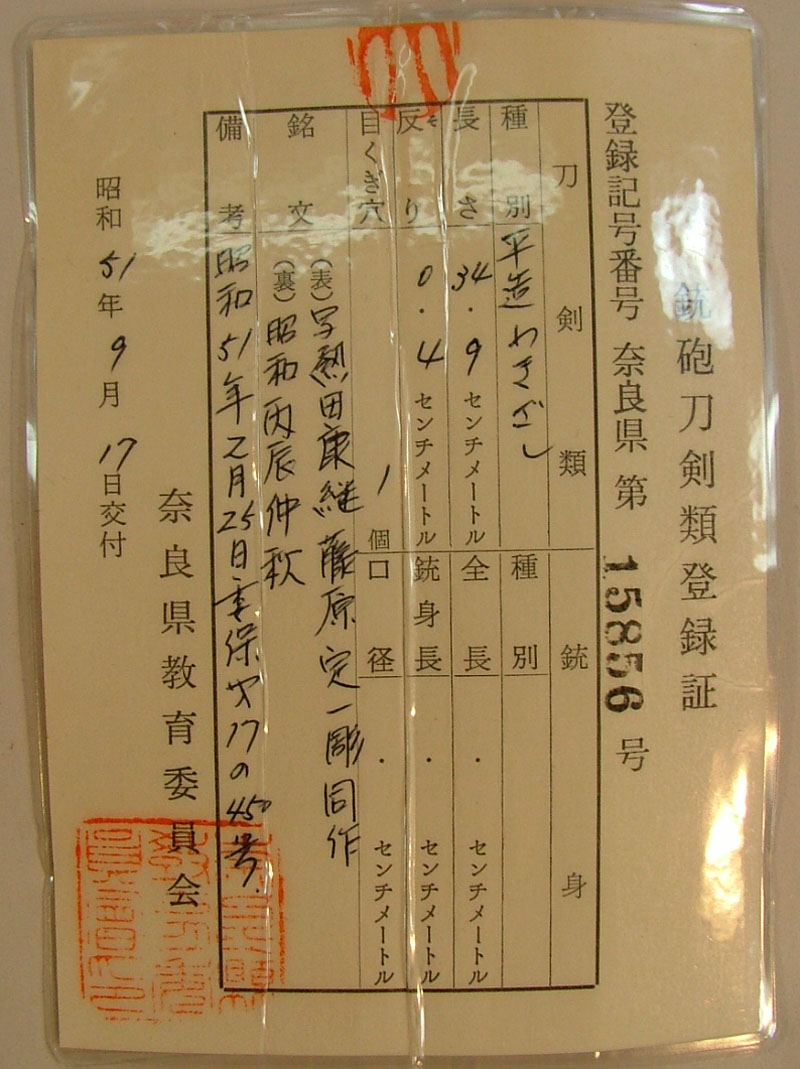 銃砲刀剣類登録証
登録記号番号 奈良県 第 15856 号
刀剣類
種別 平造わきざし
長さ 34.9 センチメートル
反り 0.4 センチメートル
目くぎ穴 1 個
銘文 (表)写熱田康継 藤原定一彫同作
(裏)昭和丙辰仲秋
備考 昭和51年2月25日 保 17の450号
銃身
種別
全長 . センチメートル
銃身長 . センチメートル
口径 . センチメートル
昭和51年9月17日交付
奈良県教育委員会